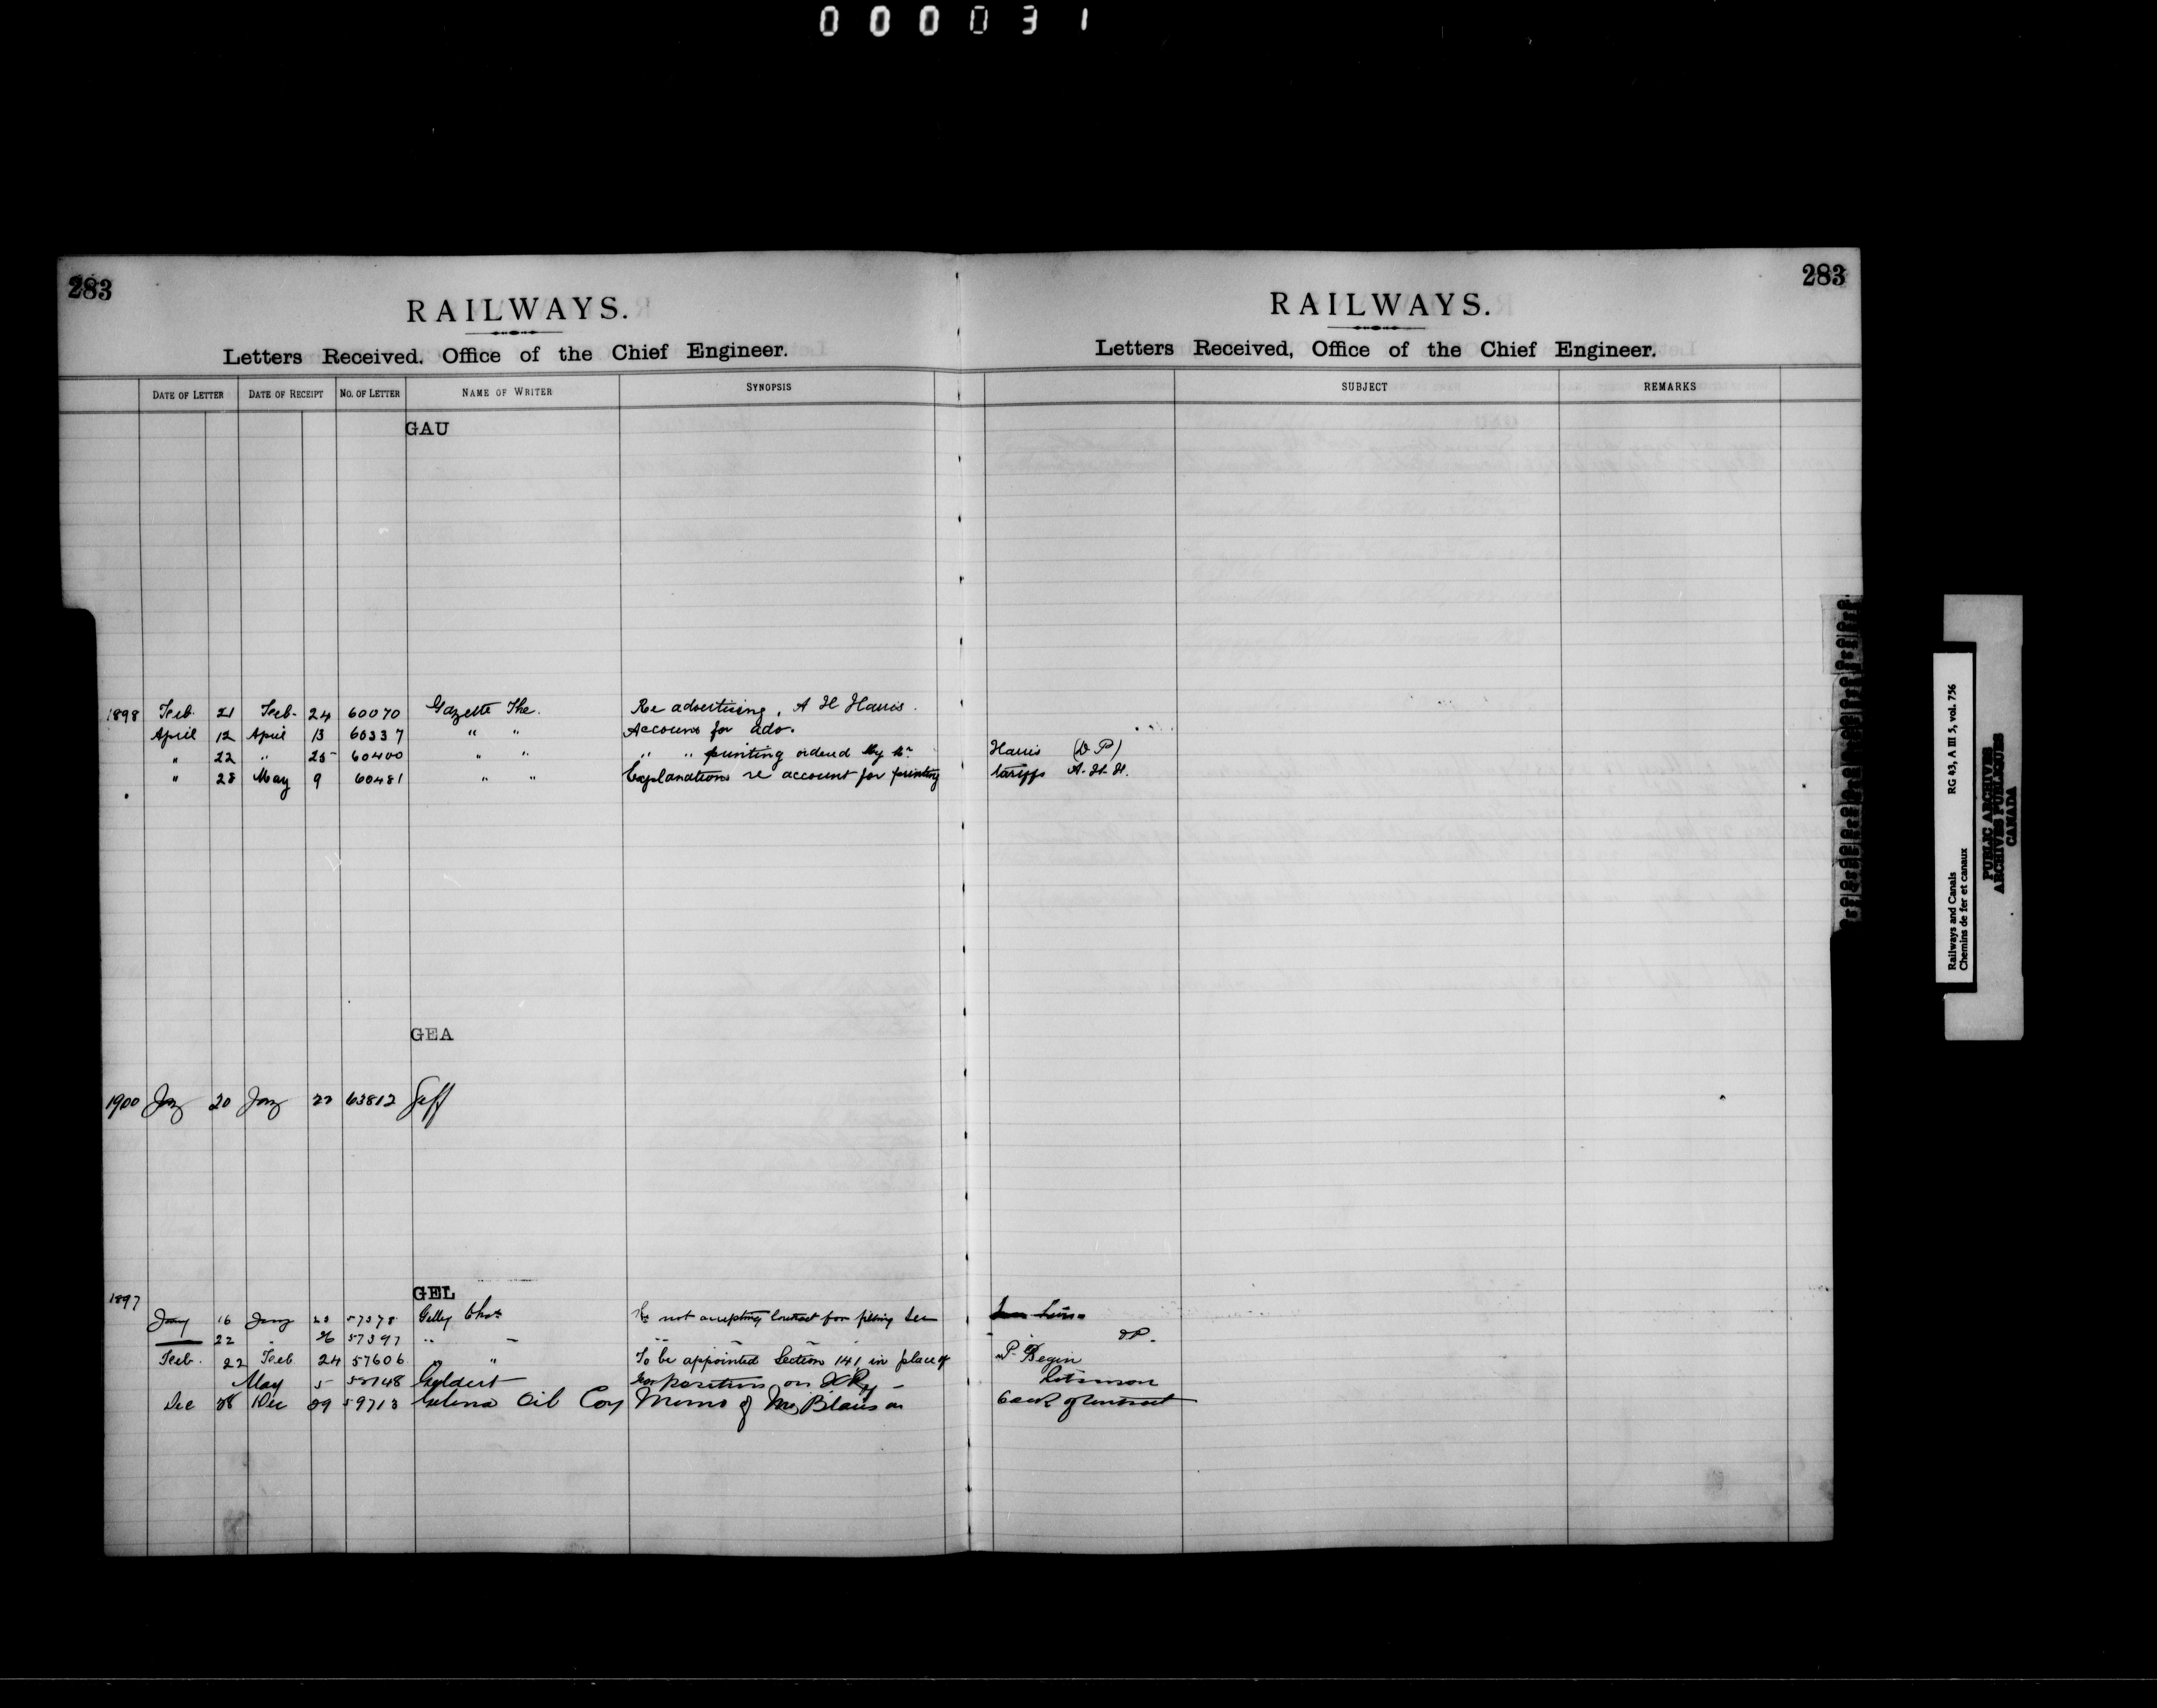 000031
283
RAILWAYS.
Letters Received, Office of the Chief Engineer.
DATE OF LETTER DATE OF RECEIPT No. OF LETTER NAME OF WRITER SYNOPSIS
GAU
1898 Feb. 21 Feb. 24 60070 Gazette The. Re advertising, A H Harris.
April 12 April 13 60337 " " Account for ado.
" 22 " 25 60400 " " " " printing ordered by Mr Harris (D P)
" 28 May 9 60481 " " Explanations re account for printing tariffs A. H. H.
GEA
1900 Jany 20 Jany 22 63812 Geff
GEL
1897
Jany 16 Jany 57378 Gelly Chas not accepting contract for
22 " 26 57397 " D.P.
Feb. 22 Feb 24 57606 " " To be appointed Section 141 in place of P. Begin
May 5 58148 Geldert position on
Dec 28 Dec 29 59713 Galena Oil Coy Memo of Mr Blair on of contract
283
RAILWAYS.
Letters Received, Office of the Chief Engineer.
SUBJECT REMARKS
Railways and Canals RG 43, A III 5, vol. 756
Chemins de fer et canaux
PUBLIC ARCHIVES
ARCHIVES PUBLIQUES
CANADA